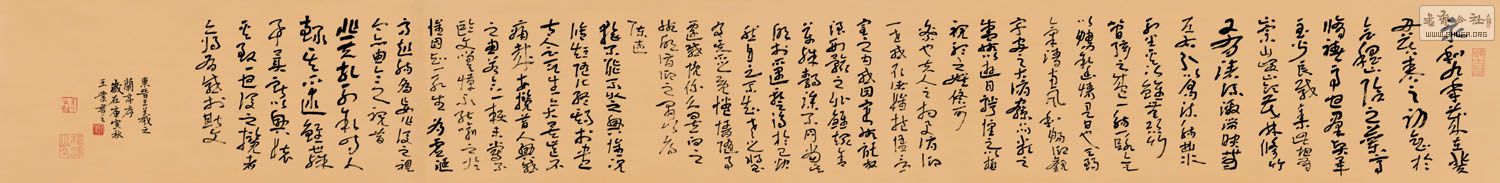 永和九年歲在癸
丑暮春之初會於
會稽山陰之蘭亭
脩禊事也群賢畢
至少長咸集此地有
崇山峻領茂林脩竹
又有清流激湍映帶
左右引以為流觴曲水
列坐其次雖無絲竹
管弦之盛一觴一詠亦足
以暢敘幽情是日也天朗
氣清惠風和暢仰觀
宇宙之大俯察品類之
盛所以遊目騁懷足以極
視聽之娛信可
樂也夫人之相與俯仰
一世或取諸懷抱悟言一
室之內或因寄所託放
浪形骸之外雖趣舍
萬殊靜躁不同當其
欣於所遇暫得於己快
然自足不知老之將至
及其所之既惓情隨事
遷感慨係之矣向之
所欣俛仰之間以為
陳迹
猶不能不以之興懷況
脩短隨化終期於盡
古人云死生亦大矣豈不
痛哉每攬昔人興感
之由若合一契未嘗不
臨文嗟悼不能喻之於
懷固知一死生為虛誕
齊彭殤為妄作後之視
今亦由今之視昔
悲夫故列敘時人
錄其所述雖世殊
事異所以興懷
其致一也後之攬者
亦將有感於斯文
東晉王羲之
蘭亭序
歲在庚寅秋
王業書之
WWW.SHUFA.ORG